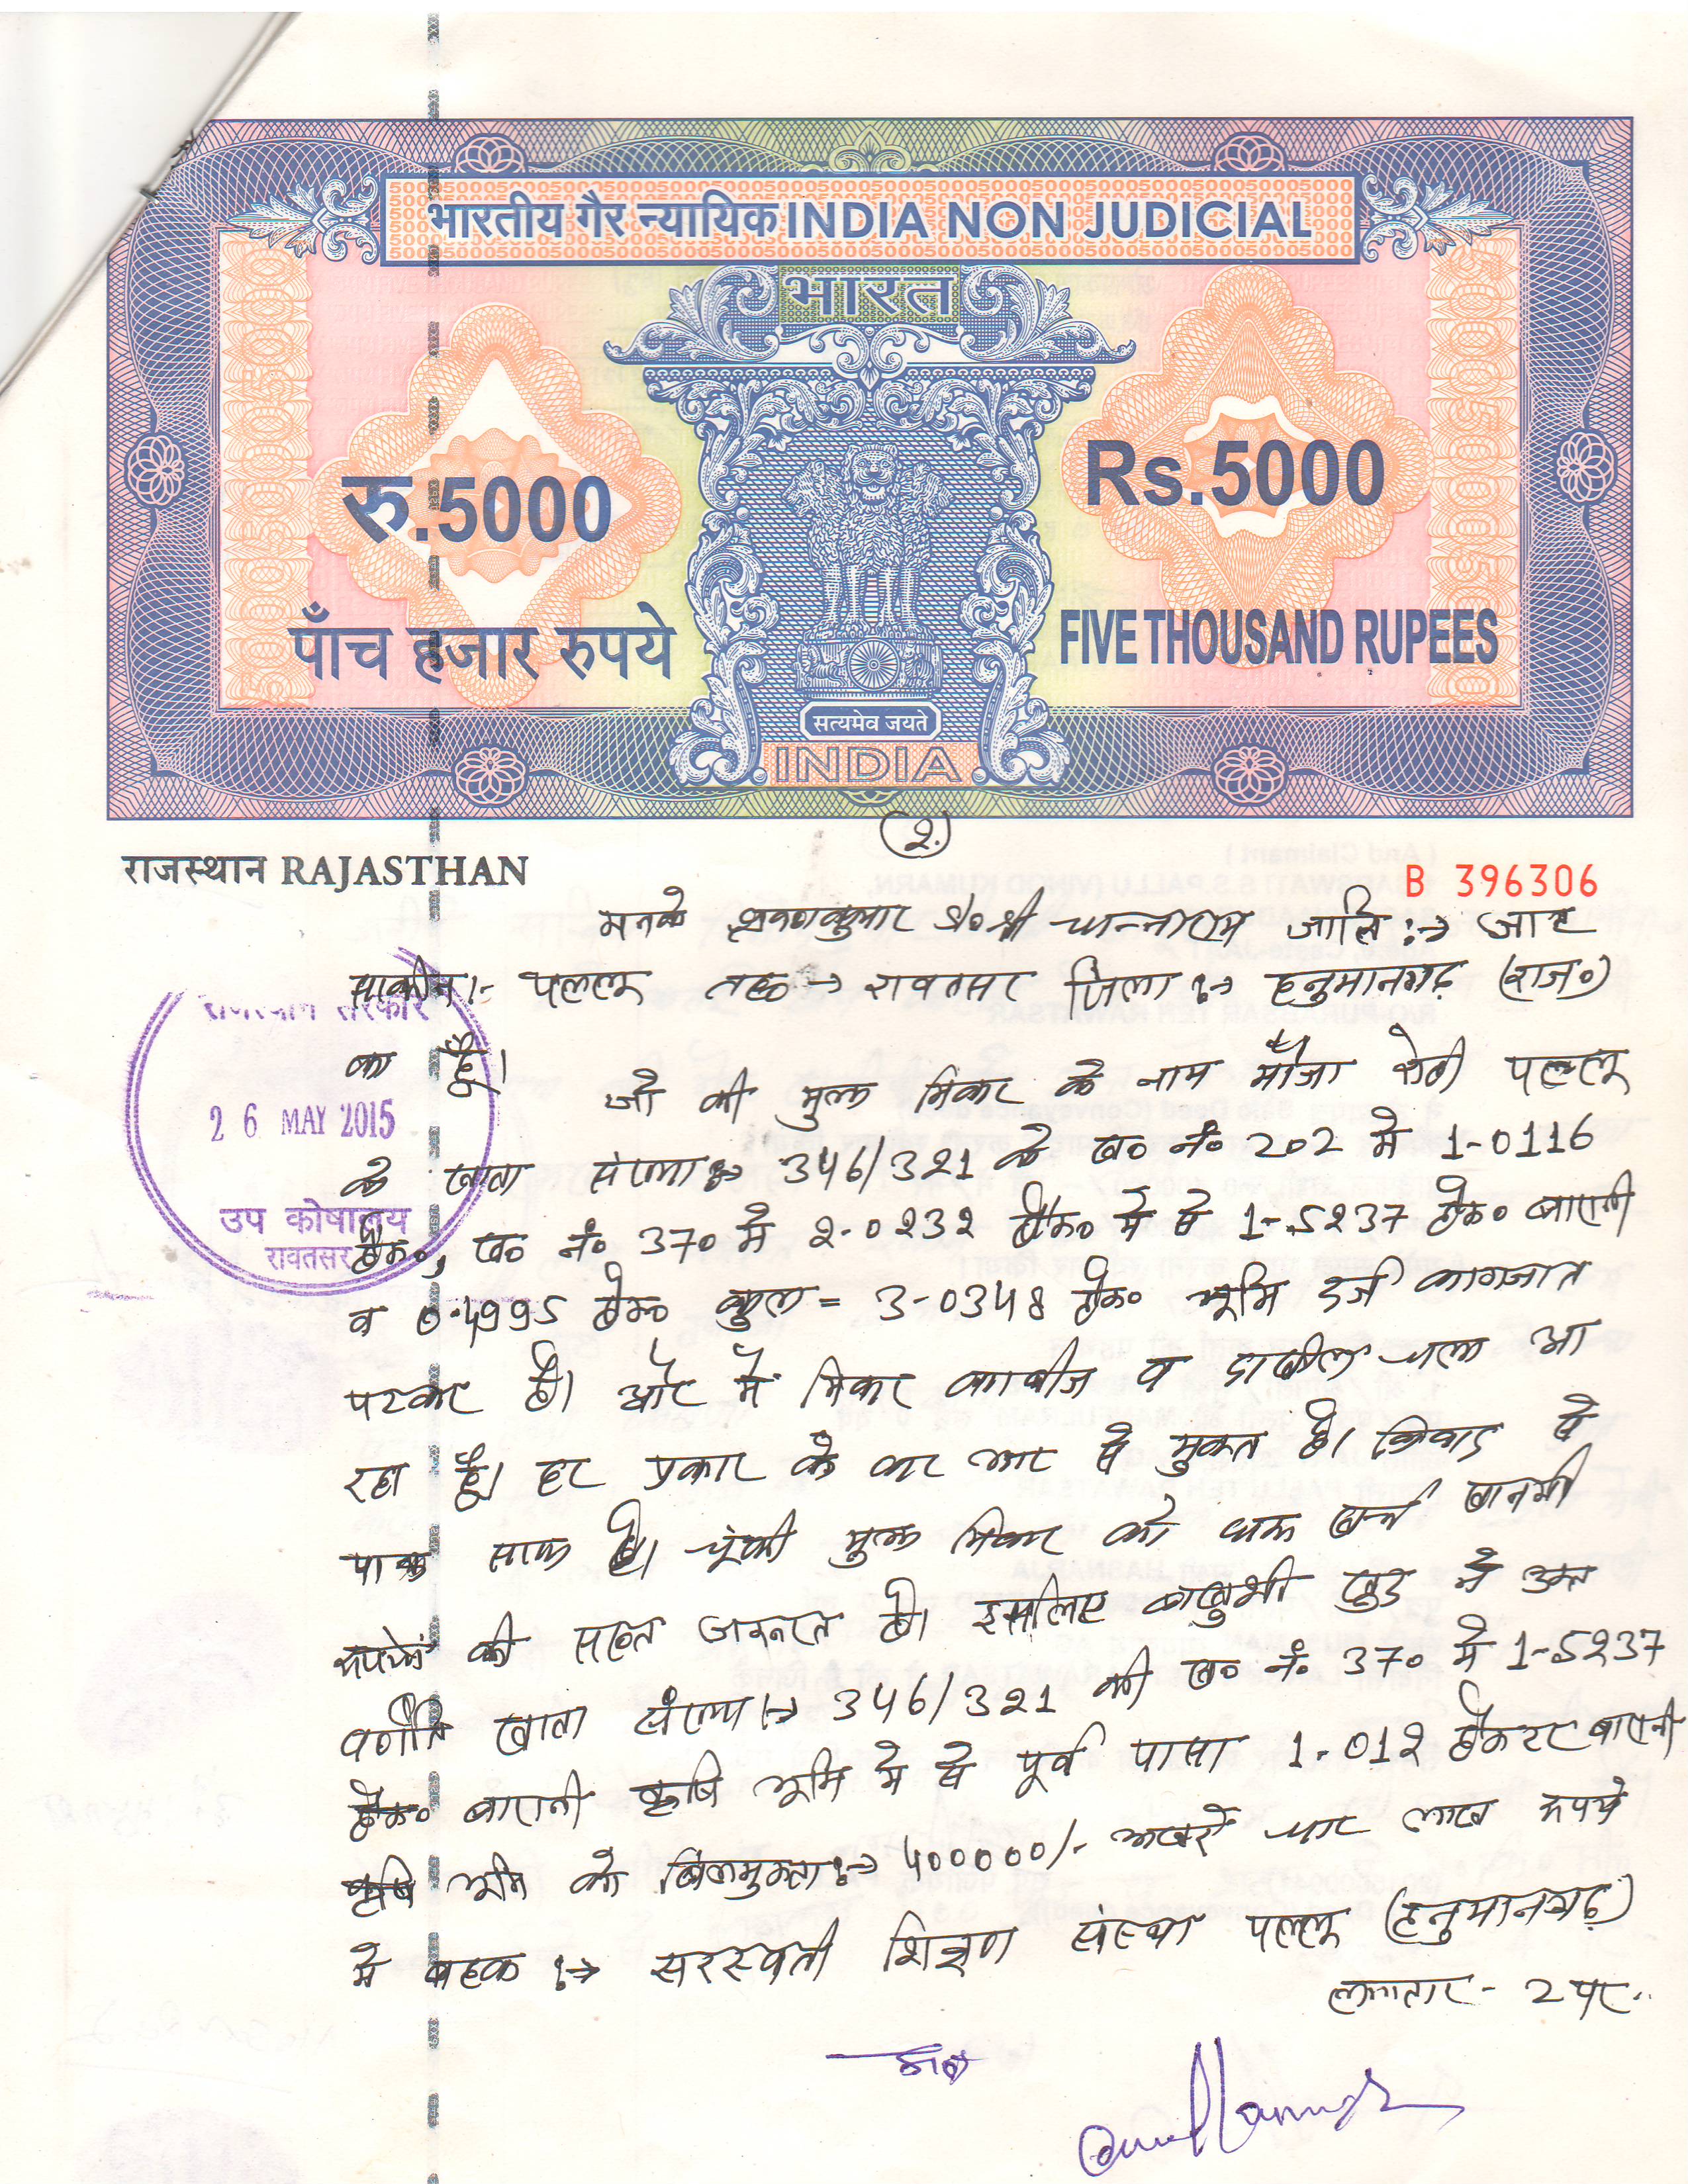 भारतीय गैर न्यायिक INDIA NON JUDICIAL
भारत
रु.5000
Rs.5000
पाँच हजार रुपये
FIVE THOUSAND RUPEES
सत्यमेव जयते
INDIA
(2.)
राजस्थान RAJASTHAN
B 396306
मनके श्रवणकुमार S/o श्री जाति :→ जाट
साकीन :- पल्लू तह० → रावतसर जिला :→ हनुमानगढ़ (राज०)
का हूँ।
जो की मुझ मिकर के नाम मौजा रोही पल्लू
के खाता संख्या :→ 346/321 के ख० नं० 202 मे 1-0116
हैक०, ख० नं० 370 मे 2-0232 हैक० मे से 1-5237 हैक० बारानी
व 0.4995 हैक० कुल = 3-0348 हैक० भूमि दर्ज कागजात
पटवार है। और मैं मिकर काबीज व दाखील चला आ
रहा हूँ। हर प्रकार के कर भार से मुक्त है। से
पाक साफ है। चूंकी मुझ मिकर को खर्च खानगी
रूपयों की सख्त जरूरत है। इसलिए बाखुशी खुद मे उक्त
वर्णीत खाता संख्या :→ 346/321 की ख० नं० 370 मे 1-5237
हैक० बारानी कृषि भूमि मे से पूर्व पासा 1-012 हैक्टर बारानी
कृषि भूमि को बिलमुक्ता :→ 400000/- अखरे चार लाख रूपये
मे बहक :→ सरस्वती शिक्षण संस्था पल्लू (हनुमानगढ़)
लगातार - 2 पर..
राजस्थान सरकार
26 MAY 2015
उप कोषालय
रावतसर